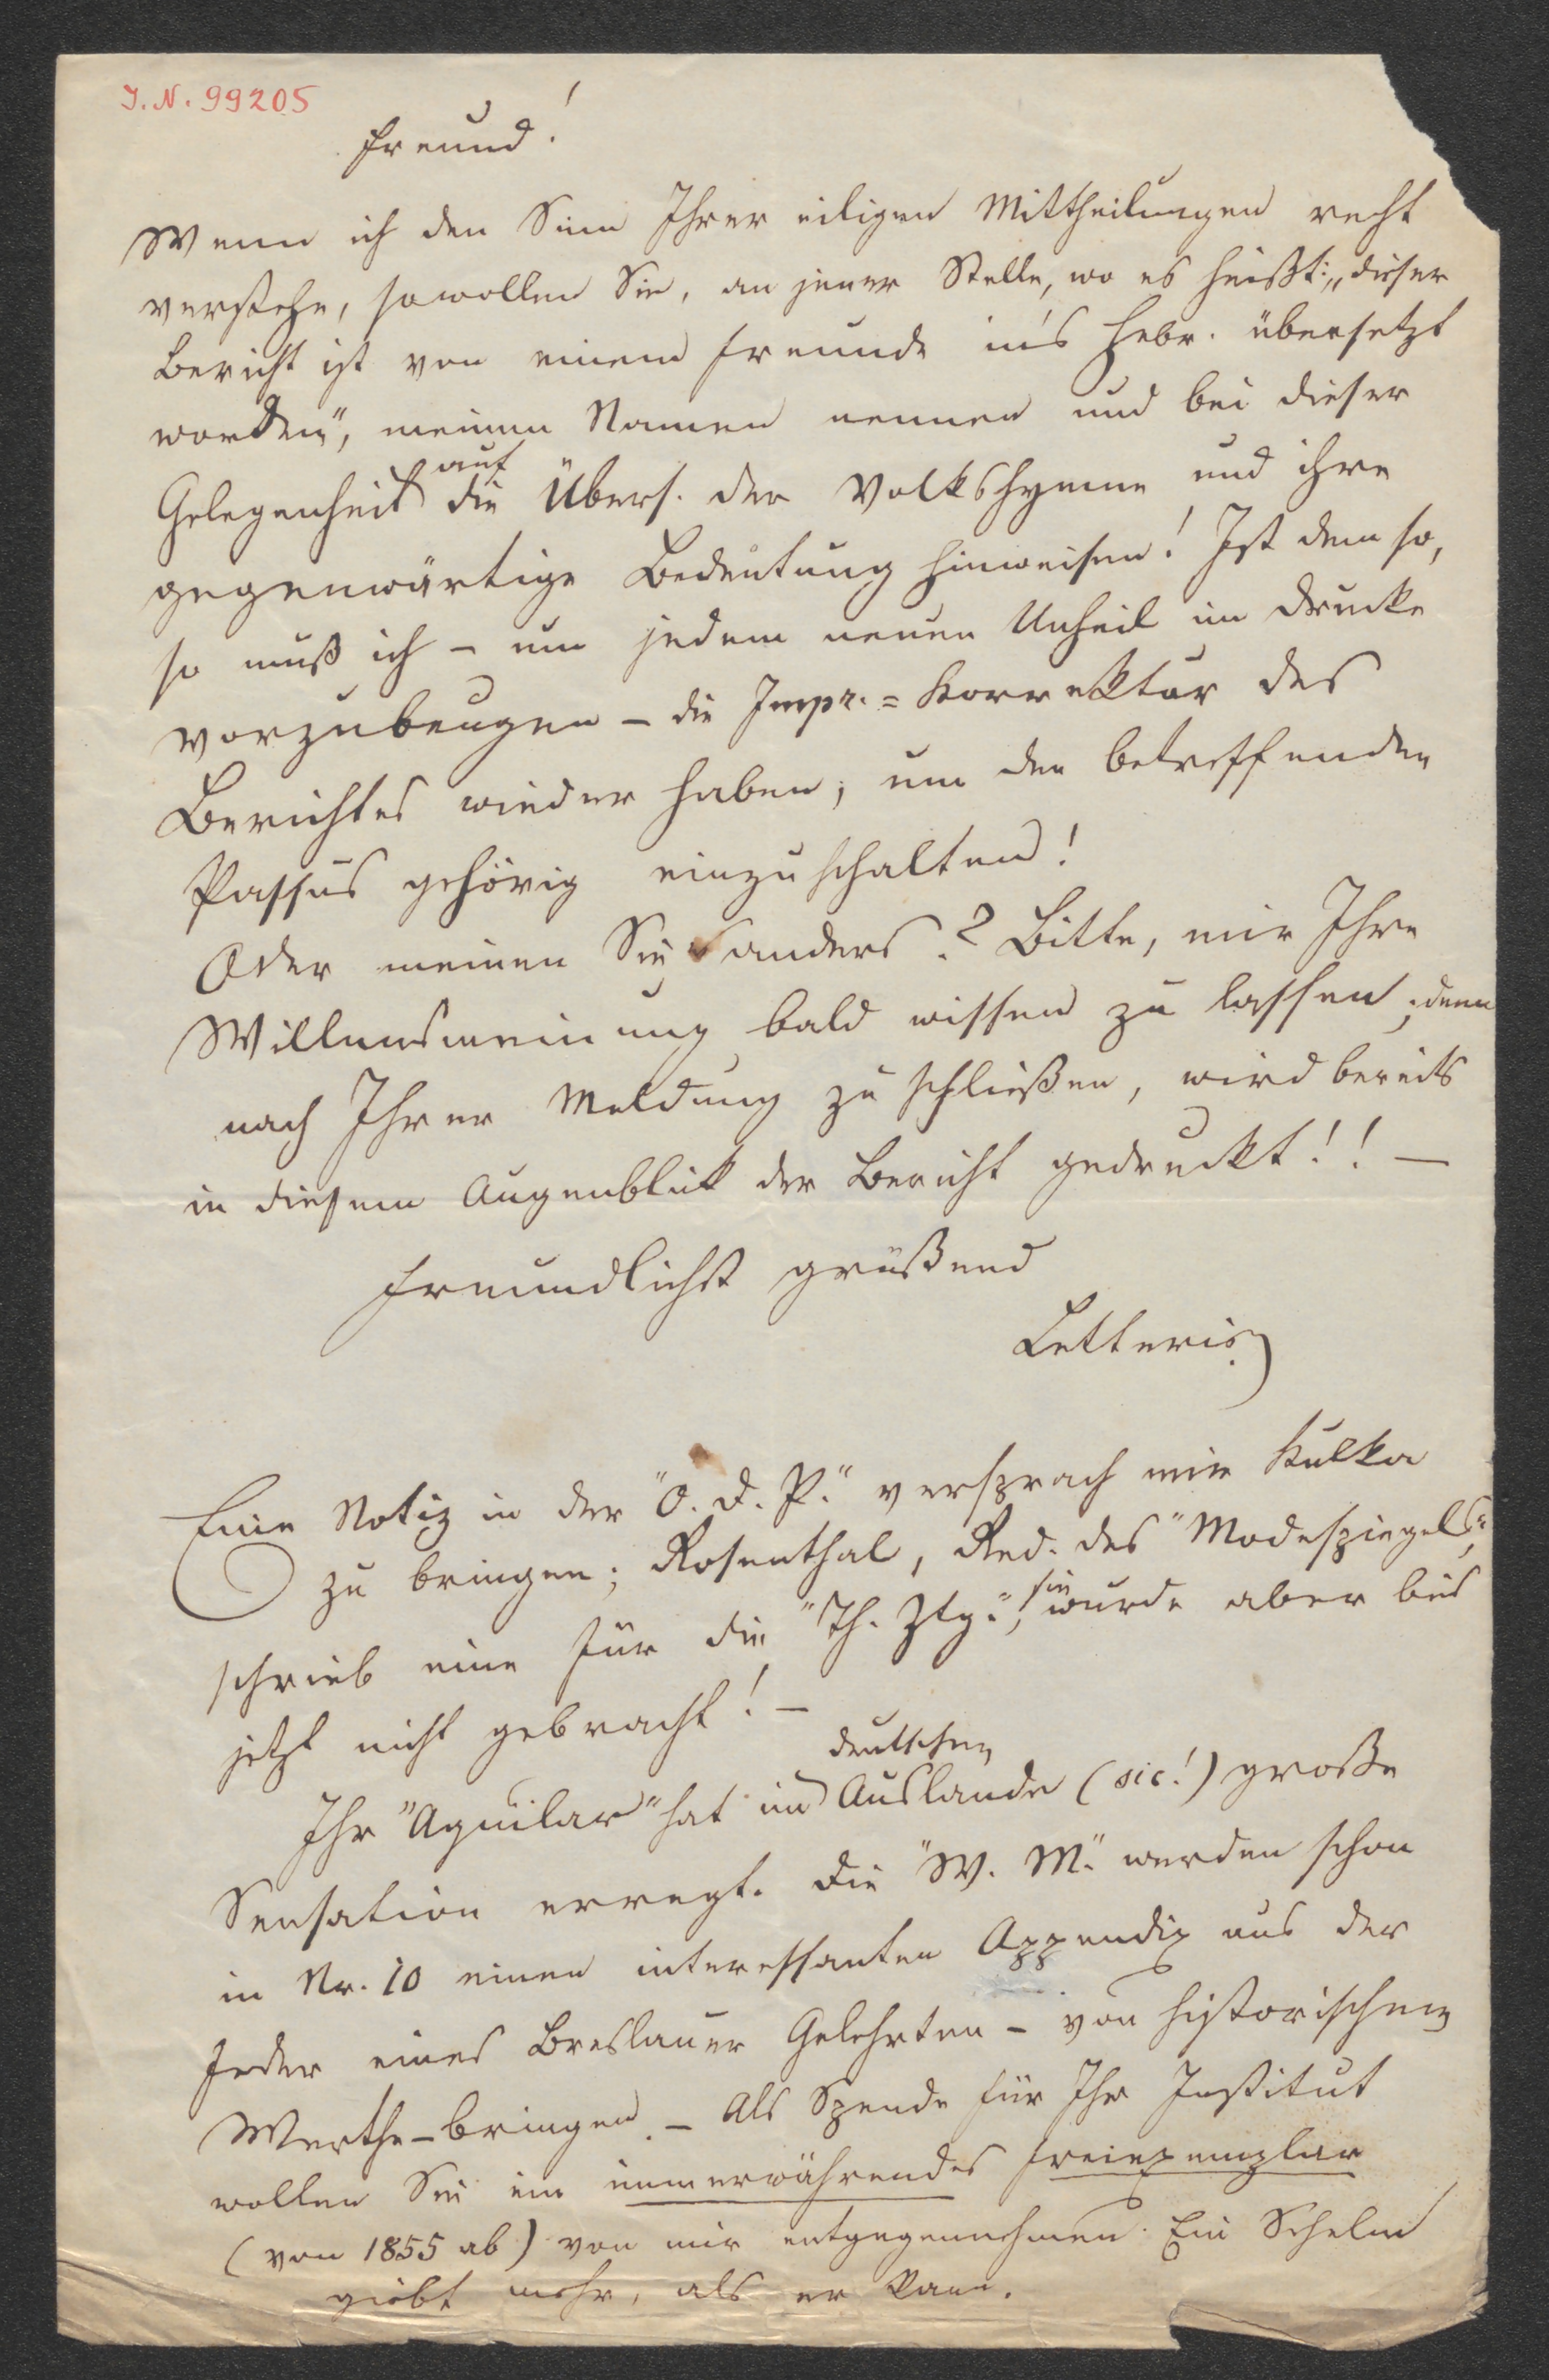 I. N. 99205
Freund!
Wenn ich den Sinn Ihrer eiligen Mittheilungen recht
verstehe, so wollen Sie, an jener Stelle, wo es heißt: „dieser
Bericht ist von einem Freunde in's Hebr. übersetzt
worden", meinen Namen nennen und bei dieser
Gelegenheit auf die Übers. der Volkshymne und ihre
gegenwärtige Bedeutung hinweisen! Ist dem so,
so muß ich – um jedem neuen Unheil im Drucke
vorzubeugen – die Impr.=Korrektur des
Berichtes wieder haben, um den betreffenden
Passus gehörig einzuschalten!
Oder meinen Sie's anders? Bitte, mir Ihre
Willensmeinung bald wissen zu lassen; denn
nach Ihrer Meldung zu schließen, wird bereits
in diesem Augenblick der Bericht gedruckt!! –
Freundlichst grüßend
Letteris
Eine Notiz in der "O. D. P." versprach mir Kulka
zu bringen; Rosenthal, Red. des "Modespiegels",
schrieb eine für die "Th. Ztg."; sie wurde aber bis
jetzt nicht gebracht! –
Ihr "Aguilar" hat im deutschen Auslande (sic!) große
Sensation erregt. Die "W. M." werden schon
in Nr. 10 einen interessanten Appendix aus der
Feder eines Breslauer Gelehrten – von historischem
Werthe – bringen. – Als Spende für Ihr Institut
wollen Sie ein immerwährendes Freiexemplar
(von 1855 ab) von mir entgegennehmen. Ein Schelm
giebt mehr, als er kann.